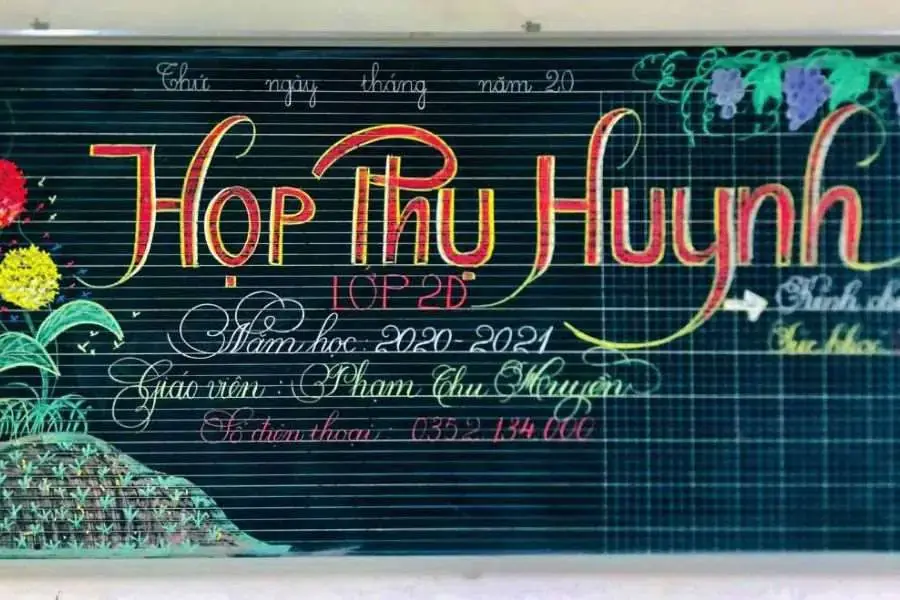 Thứ ngày tháng năm 20
Họp Phụ Huynh
LỚP 2D
Kính
Năm học: 2020-2021
Sức khỏe
Giáo viên : Phạm Thu Huyền
Số điện thoại: 0352.134.000